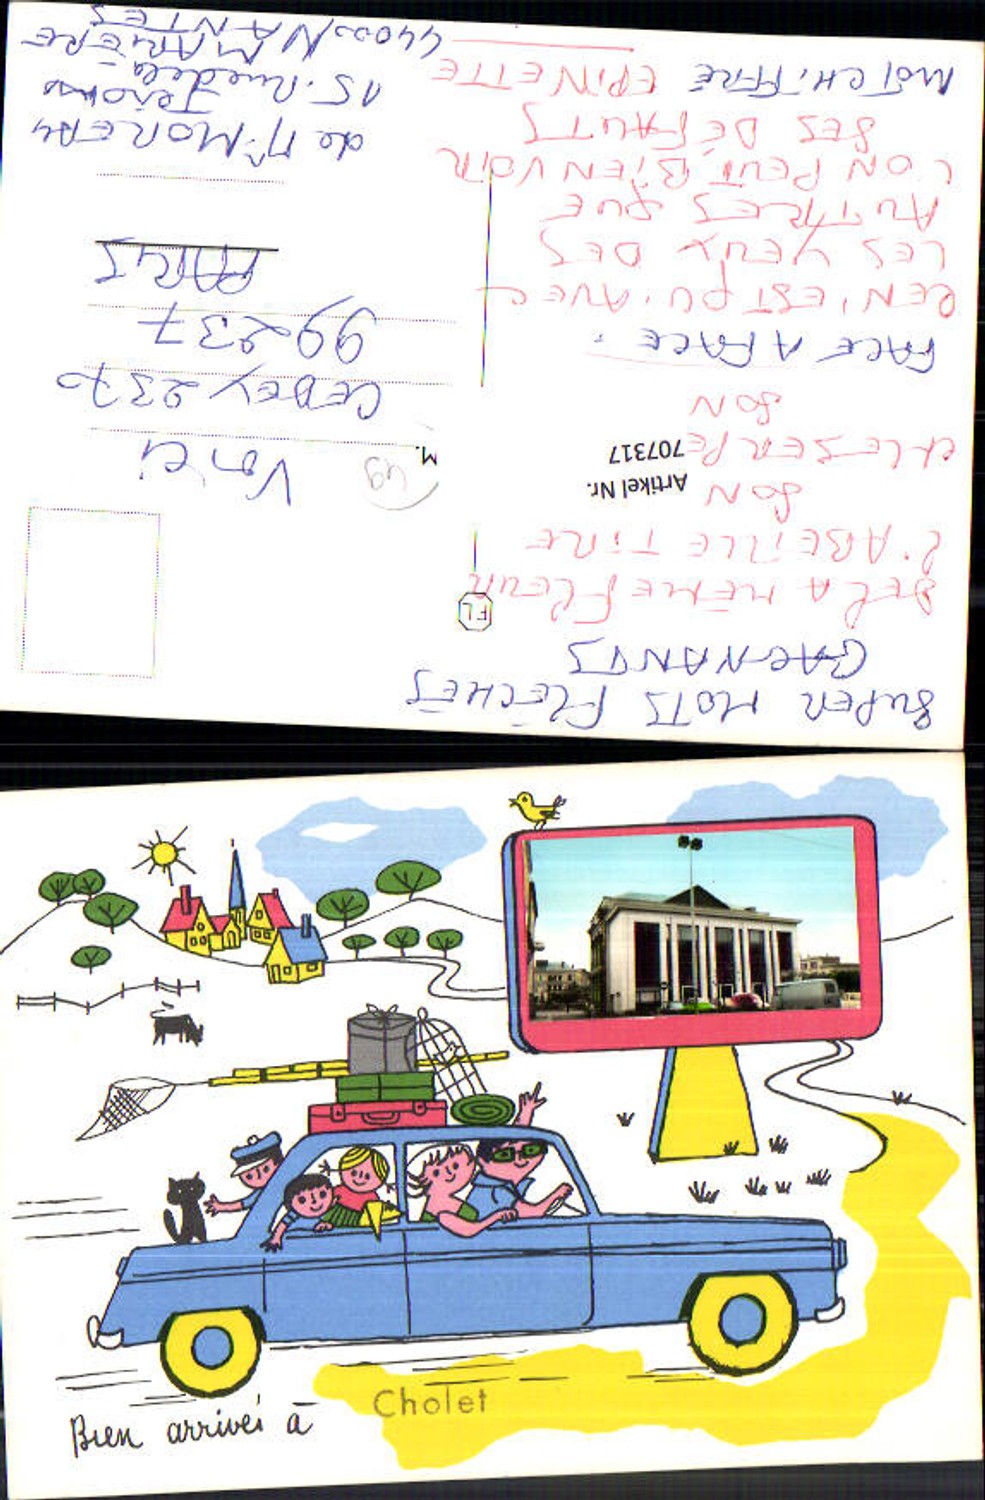 SUPER MOTS FLÉCHÉS
GAGNANTS
DE LA MÊME FLEUR
L'ABEILLE TIRE
SON
ET LE SERPE
SON
FACE A FACE.
CEN'EST QU'AVEC
LES YEUX DES
AUTRES QUE
L'ON PEUT BIEN VOIR
SES DEFAUTS
MOT CHIFFRE EPINETTE
Artikel Nr.
707317
FL
M.
49
Von ci
CEDEX 2370
99237
PARIS
de Mr MOREAU
Jérôme
15. rue de la
MARIERE
44000 NANTES
Bien arrivés à
Cholet